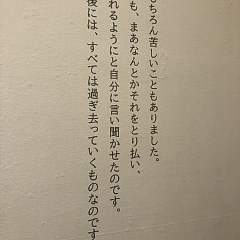 もちろん苦しいこともありました。
も、まあなんとかそれをとり払い、
れるようにと自分に言い聞かせたのです。
後には、すべては過ぎ去っていくものなのです